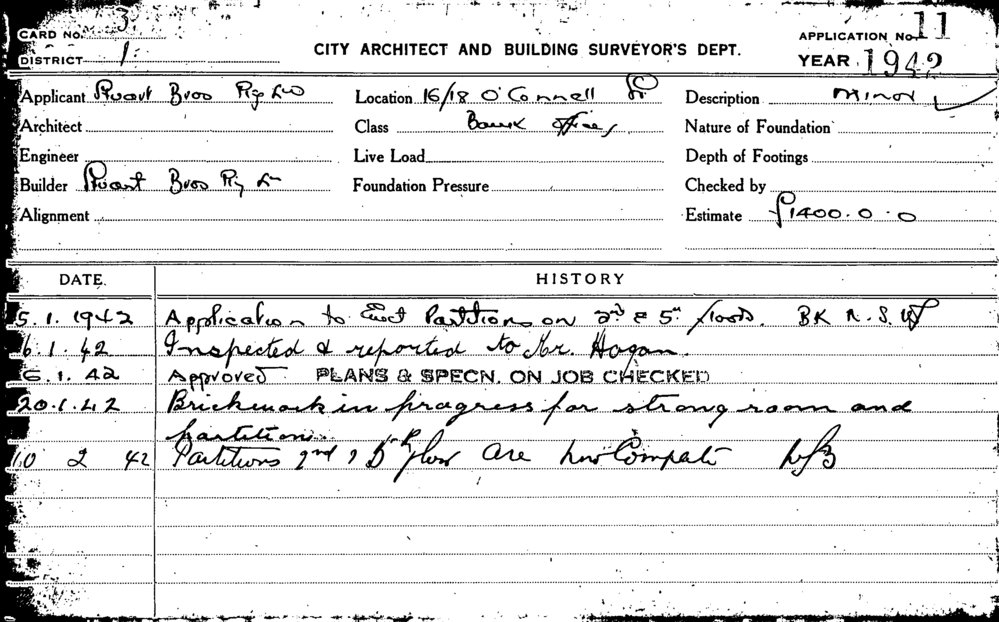 CARD No. 3
DISTRICT 1.
CITY ARCHITECT AND BUILDING SURVEYOR'S DEPT.
APPLICATION No. 11
YEAR 1942
Applicant Stuart Bros Pty Ltd Location 16/18 O'Connell St Description minor
Architect Class Bank Offices Nature of Foundation
Engineer Live Load Depth of Footings
Builder Stuart Bros Pty Foundation Pressure Checked by
Alignment Estimate £1400.0.0
DATE. HISTORY
5.1.1942 Application to Erect Partitions on 2nd & 5th floors. BK N.S.W
6.1.42 Inspected & reported to Mr. Hogan.
6.1.42 Approved PLANS & SPECN. ON JOB CHECKED
20.1.42 Brickwork in progress for strong room and
partitions.
10 2 42 Partitions 2nd & 5th floor are now